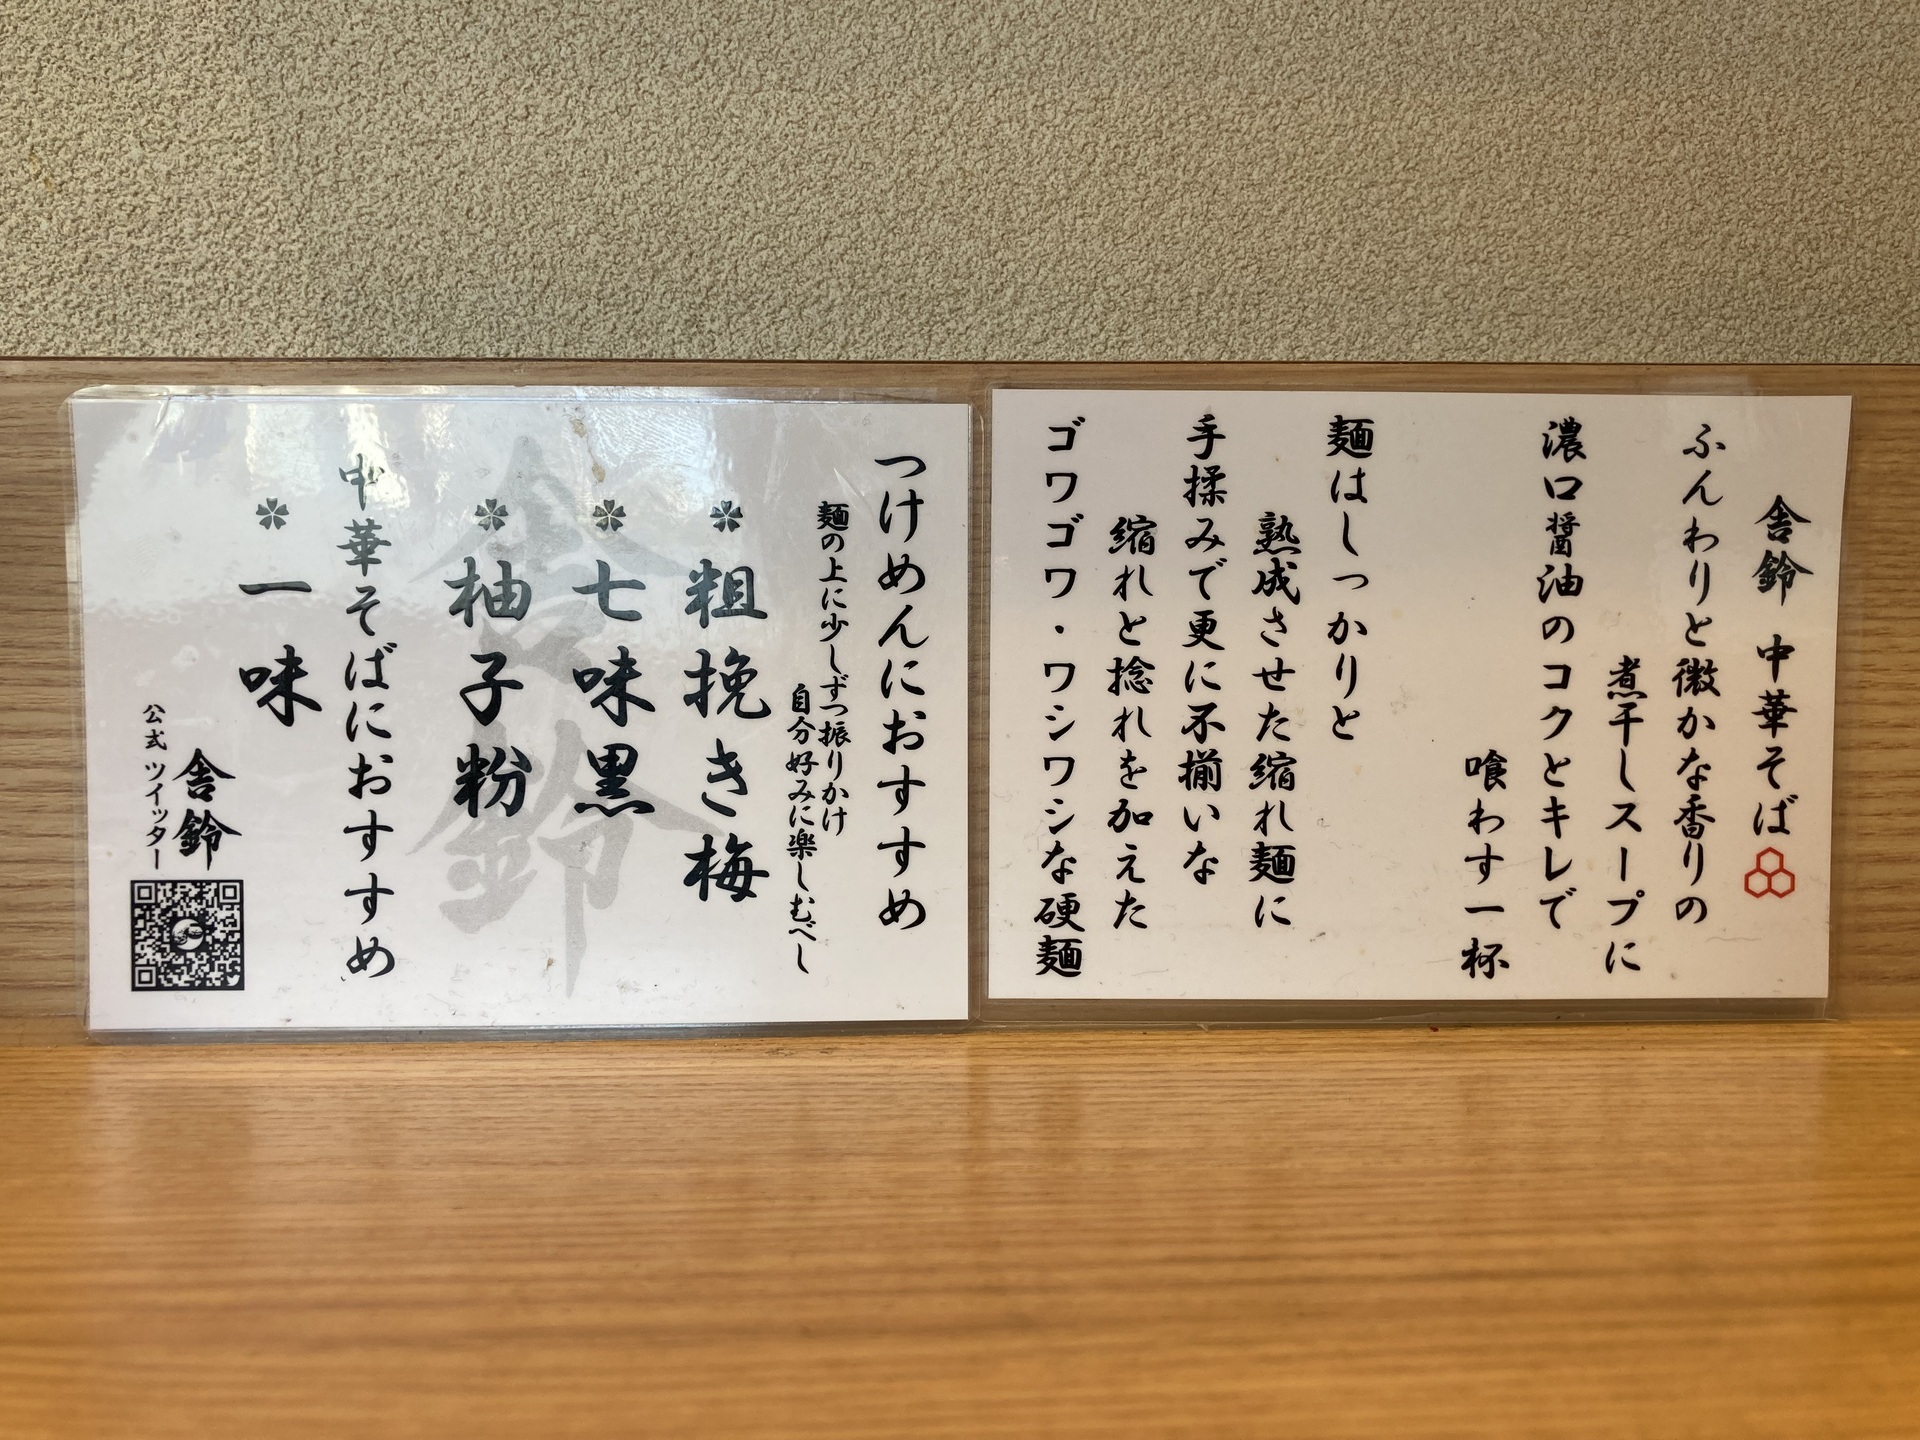 舎鈴 中華そば
ふんわりと微かな香りの
煮干しスープに
濃口醤油のコクとキレで
喰わす一杯
麺はしっかりと
熟成させた縮れ麺に
手揉みで更に不揃いな
縮れと捻れを加えた
ゴワゴワ・ワシワシな硬麺
つけめんにおすすめ
麺の上に少しずつ振りかけ
自分好みに楽しむべし
粗挽き梅
七味黒
柚子粉
中華そばにおすすめ
一味
舎鈴
公式 ツイッター
舎鈴